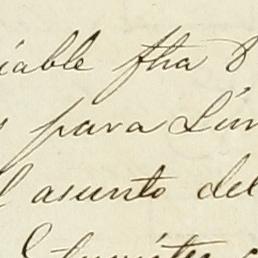 iable fha 8
s para Lun
l asunto del